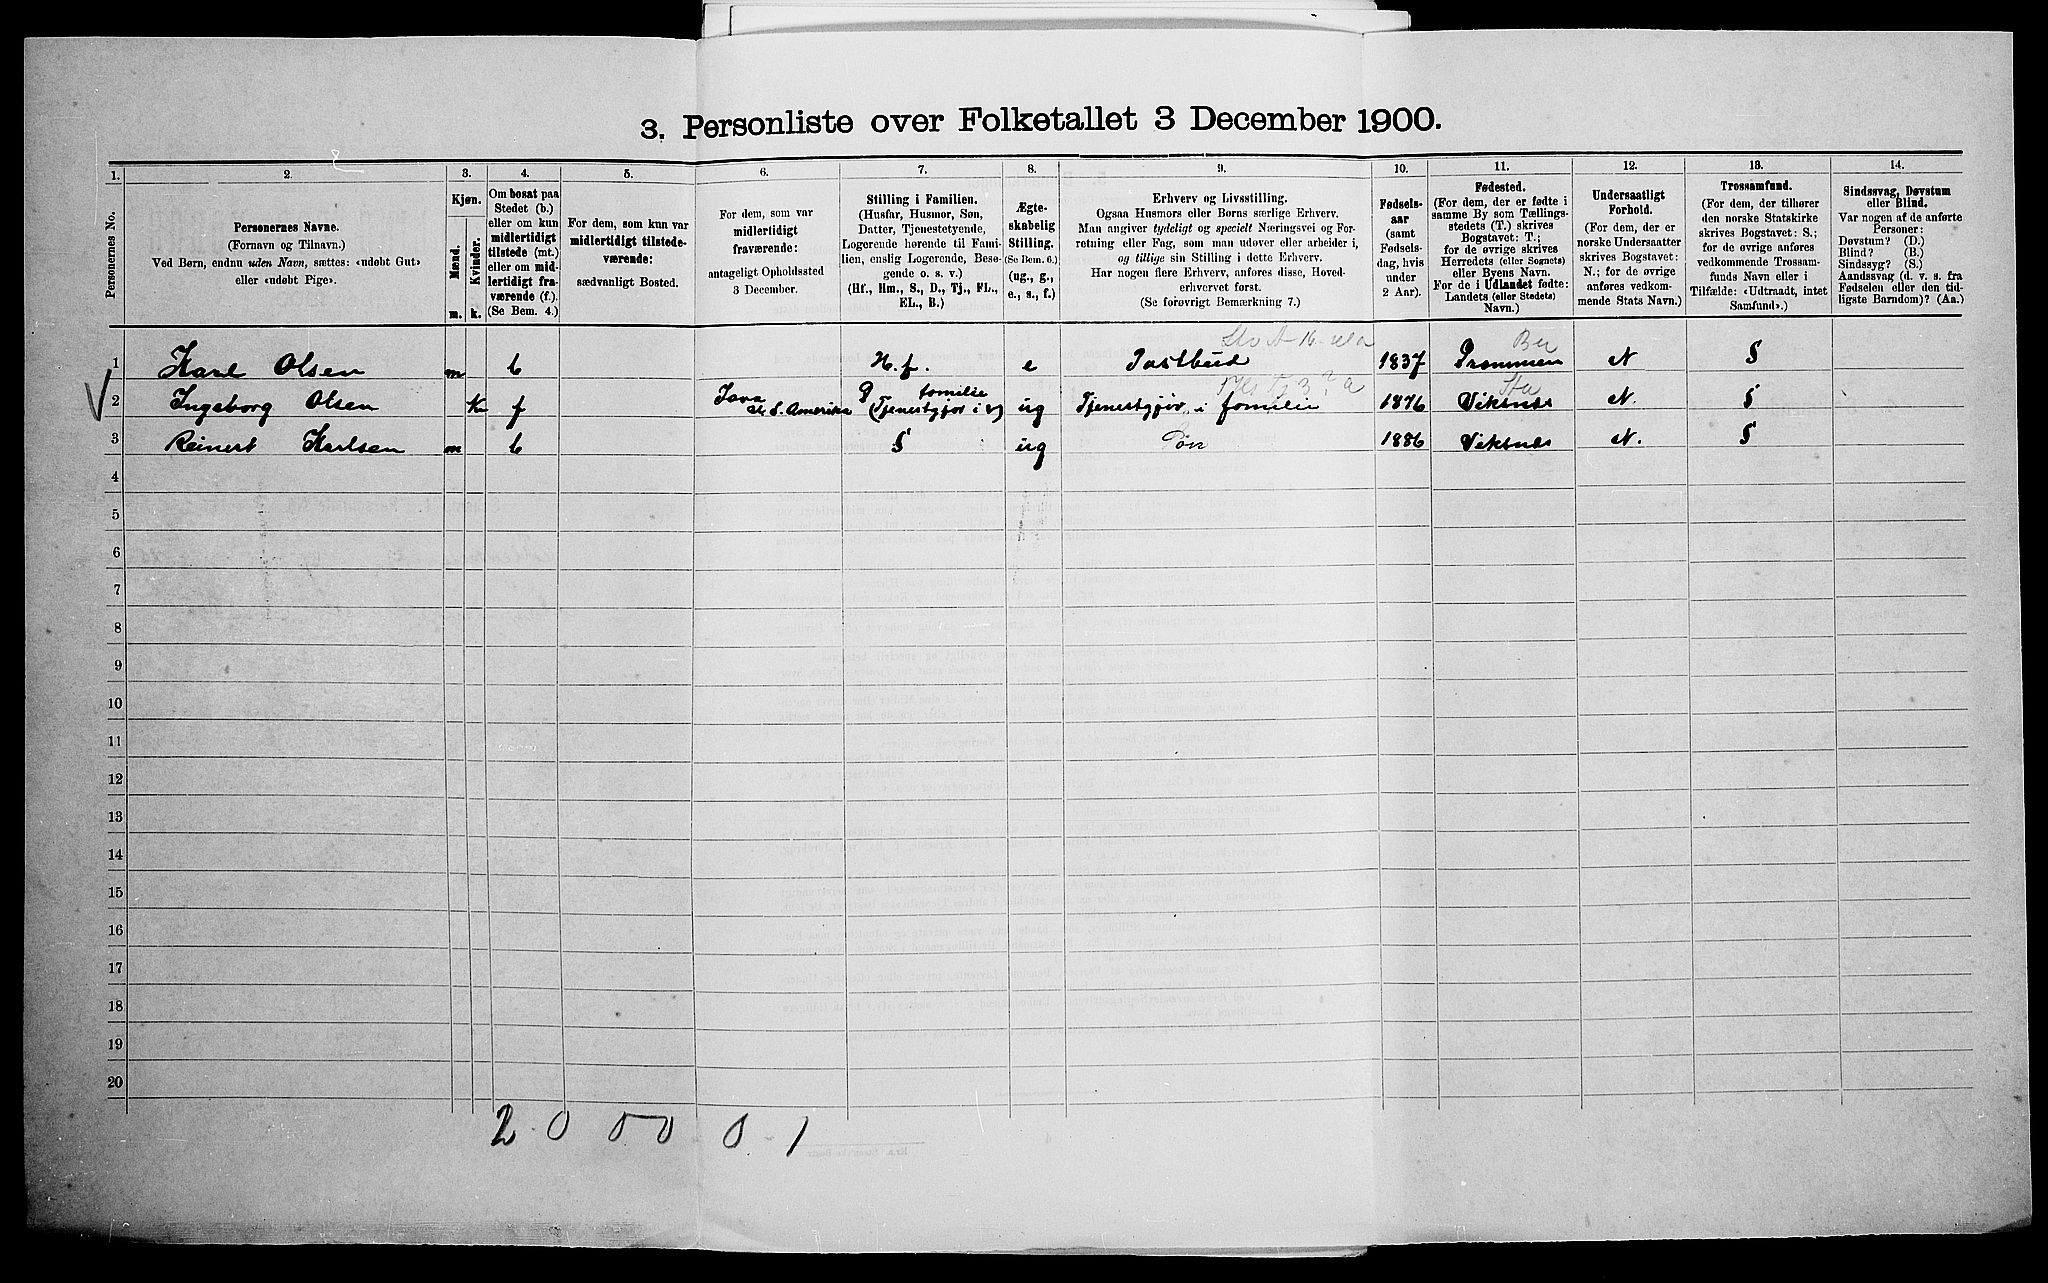 3. Personliste over Folketallet 3 December 1900.
1. 2. 3. 4. 5. 6. 7. 8. 9. 10. 11. 12. 13. 14.
Personernes No.
Personernes Navne.
(Fornavn og Tilnavn.)
Ved Børn, endnu uden Navn, sættes: «udøbt Gut»
eller «udøbt Pige».
Kjøn.
Mænd.
Kvinder.
m. k.
Om bosat paa
Stedet (b.)
eller om kun
midlertidigt
tilstede (mt.)
eller om mid-
lertidigt fra-
værende (f.).
(Se Bem. 4.)
For dem, som kun var
midlertidigt tilstede-
værende:
sædvanligt Bosted.
For dem, som var
midlertidigt
fraværende:
antageligt Opholdssted
3 December.
Stilling i Familien.
(Husfar, Husmor, Søn,
Datter, Tjenestetyende,
Logerende hørende til Fami-
lien, enslig Logerende, Besø-
gende o. s. v.)
(Hf., Hm., S., D., Tj., FL.,
EL., B.)
Ægte-
skabelig
Stilling.
(Se Bem. 6.)
(ug., g.,
e., s., f.)
Erhverv og Livsstilling.
Ogsaa Husmors eller Børns særlige Erhverv.
Man angiver tydeligt og specielt Næringsvei og For-
retning eller Fag, som man udøver eller arbeider i,
og tillige sin Stilling i dette Erhverv.
Har nogen flere Erhverv, anføres disse, Hoved-
erhvervet først.
(Se forøvrigt Bemærkning 7.)
Fødsels-
aar
(samt
Fødsels-
dag, hvis
under
2 Aar).
Fødested.
(For dem, der er fødte i
samme By som Tællings-
stedets (T.) skrives
Bogstavet: T.;
for de øvrige skrives
Herredets (eller Sognets)
eller Byens Navn.
For de i Udlandet fødte:
Landets (eller Stedets)
Navn.)
Undersaatligt
Forhold.
(For dem, der er
norske Undersaatter
skrives Bogstavet:
N.; for de øvrige
anføres vedkom-
mende Stats Navn.)
Trossamfund.
(For dem, der tilhører
den norske Statskirke
skrives Bogstavet: S.;
for de øvrige anføres
vedkommende Trossam-
funds Navn eller i
Tilfælde: «Udtraadt, intet
Samfund».)
Sindssvag, Døvstum
eller Blind.
Var nogen af de anførte
Personer:
Døvstum? (D.)
Blind? (B.)
Sindssyg? (S.)
Aandssvag (d. v. s. fra
Fødselen eller den tid-
ligste Barndom)? (Aa.)
1 Karl Olsen m b H.f. e Postbud 1837 Tromøen N S
2 Ingeborg Olsen K f S. Amerika familie (Tjenestgjør i ug Tjenestgjør i familie 1876 Viksnes N. S
3 Reinert Karlsen m b S ug Søn 1886 Viksnes N. S
4
5
6
7
8
9
10
11
12
13
14
15
16
17
18
19
20
2 0 0 0 0 0 1